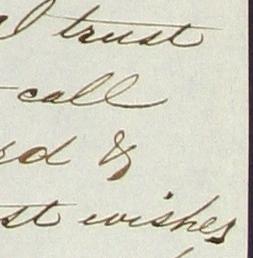 l trust
call
rd &
st wishes